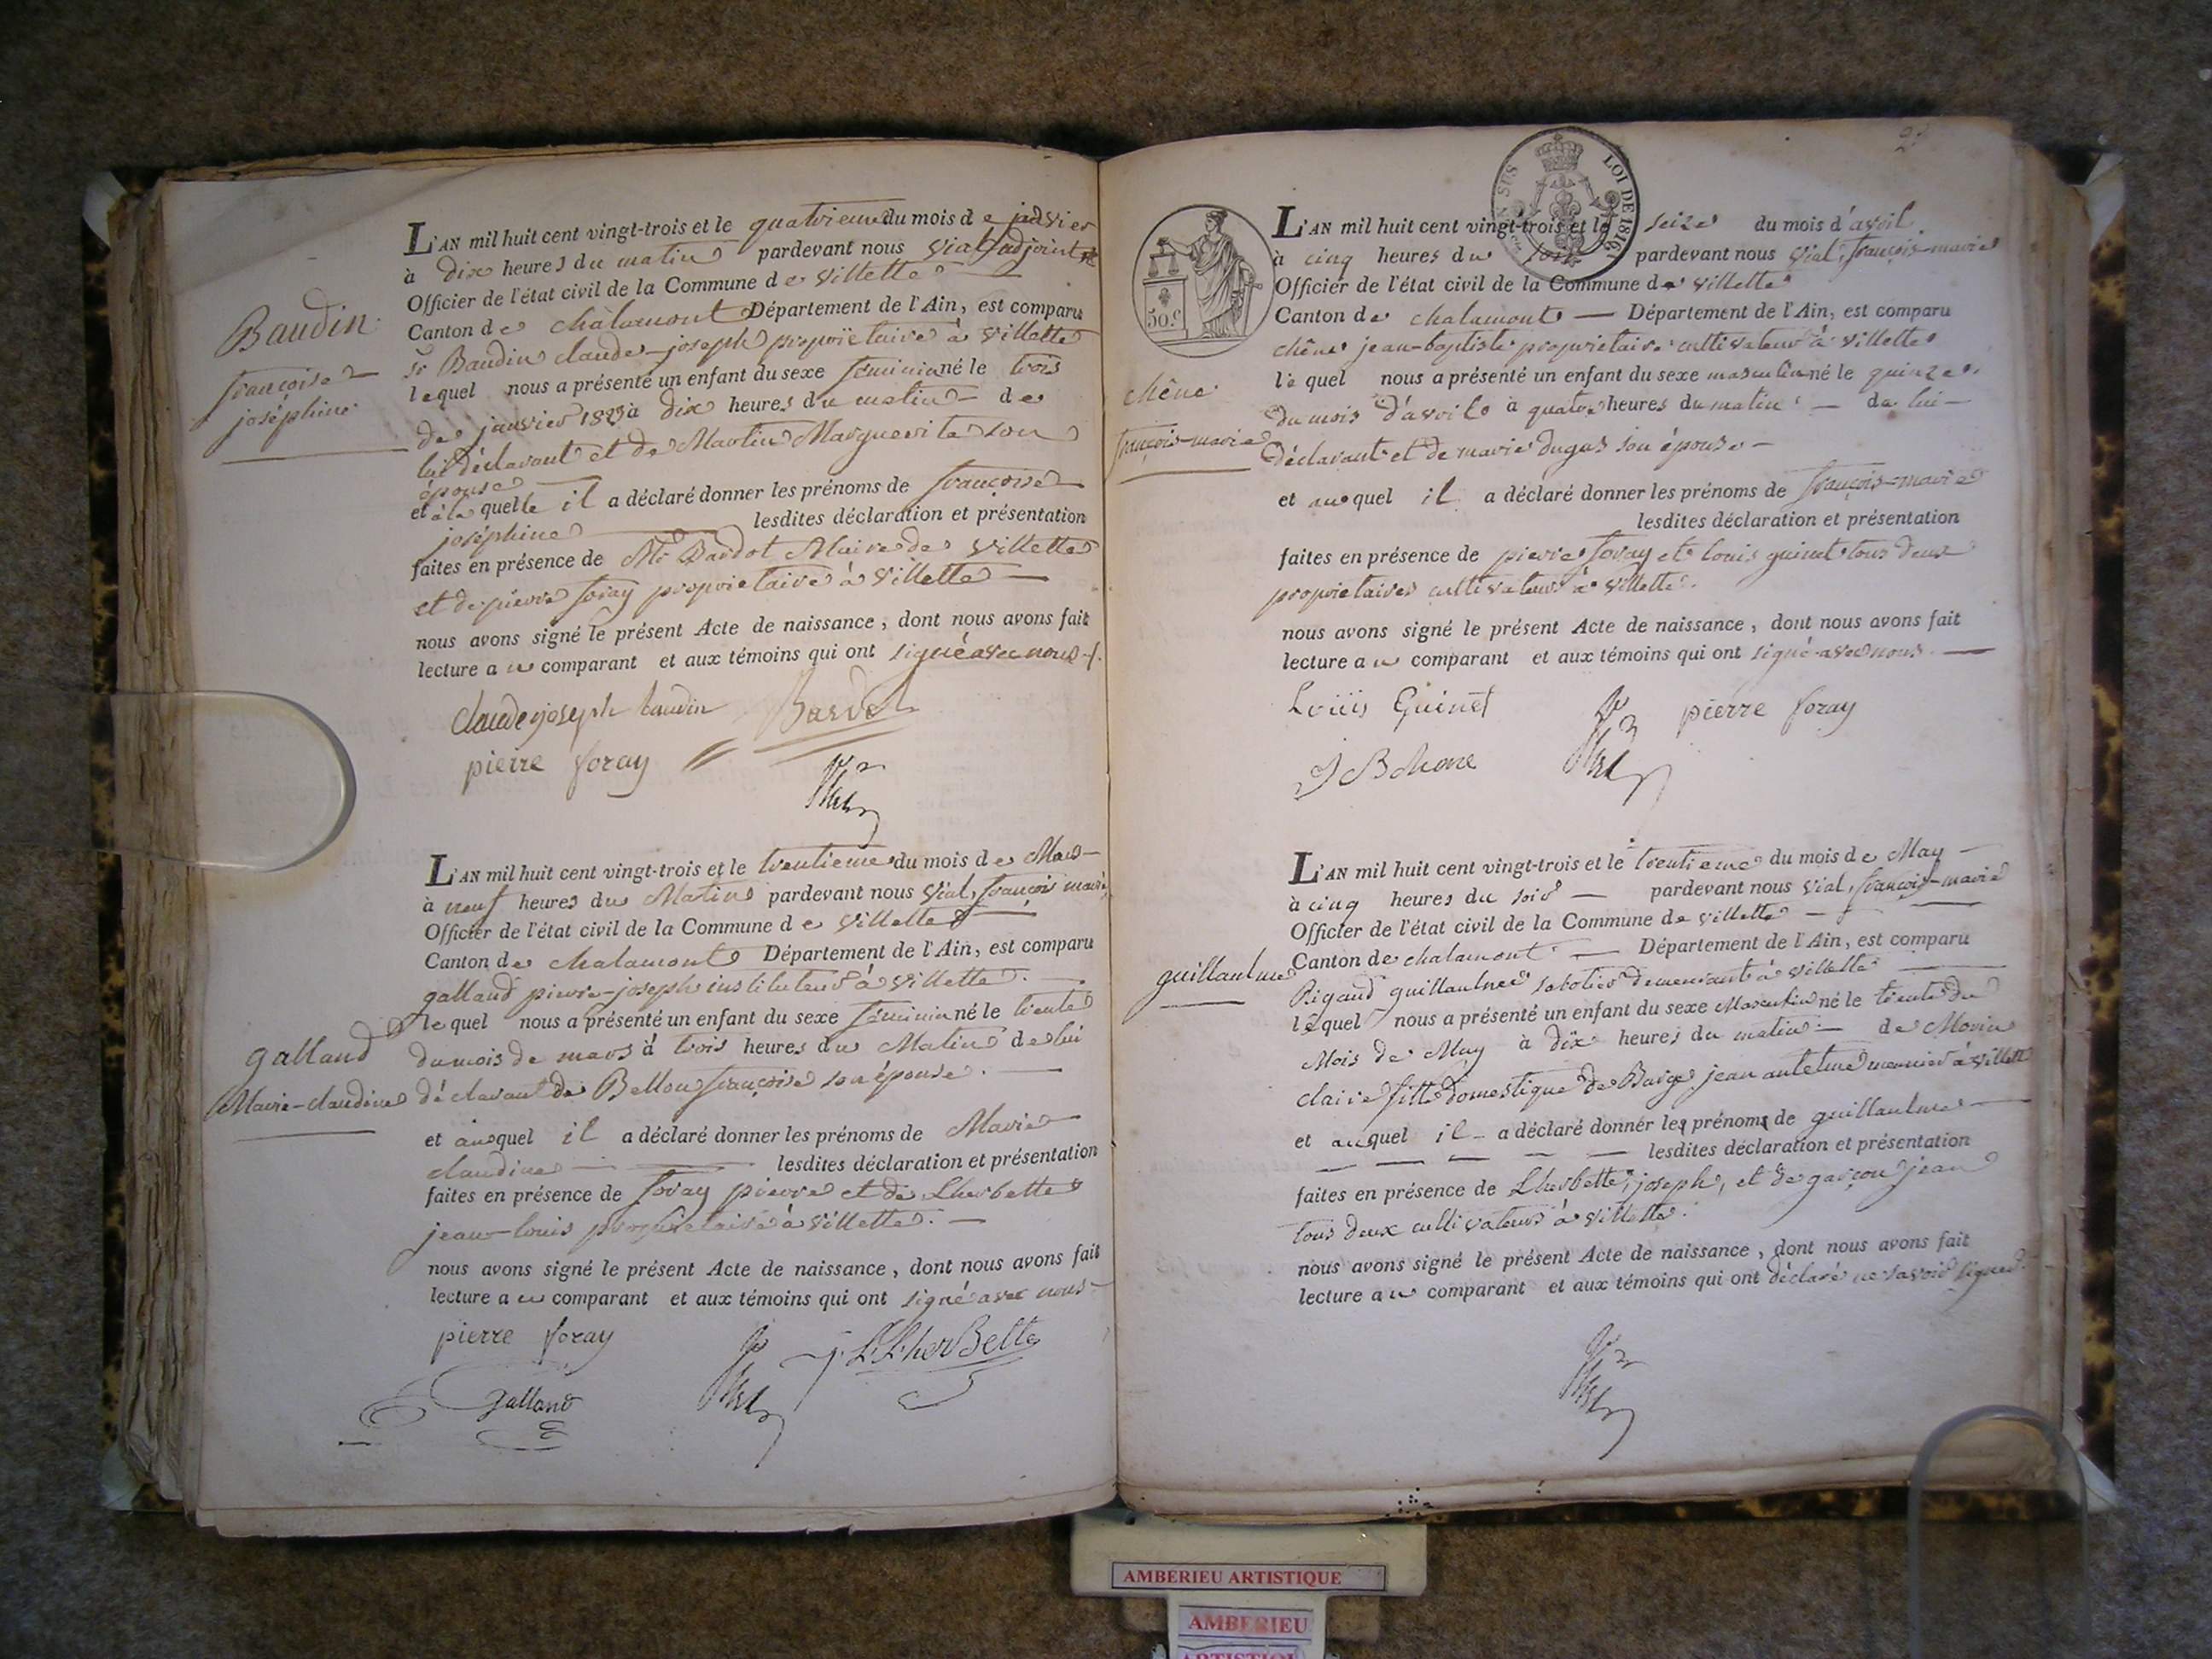 L'AN mil huit cent vingt-trois et le quatrieme du mois de janvier
à dix heures du matin pardevant nous Vial adjoint
Officier de l'état civil de la Commune de Villette
Canton de chalamont Département de l'Ain, est comparu
Baudin
sr Baudin claude-joseph propriètaire à Villette
françoise
lequel nous a présenté un enfant du sexe féminin né le trois
joséphine
de janvier 1823 à dix heures du matin de
lui déclarant et de Martin Marguerite son
épouse
et à la quelle il a déclaré donner les prénoms de françoise
joséphine lesdites déclaration et présentation
faites en présence de Mr Bardot Maire de Villette
et de pierre foray proprietaire à Villette
nous avons signé le présent Acte de naissance, dont nous avons fait
lecture au comparant et aux témoins qui ont signé avec nous
claude joseph baudin
pierre foray
L'AN mil huit cent vingt-trois et le trentieme du mois de Mars
à neuf heures du Matin pardevant nous Vial, françois marie
Officier de l'état civil de la Commune de Villette
Canton de chalamont Département de l'Ain, est comparu
galland pierre-joseph instituteur à Villette.
lequel nous a présenté un enfant du sexe féminin né le trente
galland
du mois de mars à trois heures du Matin de lui
Marie-claudine
déclarant de Bellon françoise son épouse.
et au quel il a déclaré donner les prénoms de Marie
claudine lesdites déclaration et présentation
faites en présence de foray pierre et de Lherbette
jean-louis proprietaire à Villette.
nous avons signé le présent Acte de naissance, dont nous avons fait
lecture au comparant et aux témoins qui ont signé avec nous
pierre foray
j. L. LherBette
galland
LOI DE 1816
50 c.
L'AN mil huit cent vingt-trois et le seize du mois d'avril
à cinq heures du soir pardevant nous Vial, françois-marie
Officier de l'état civil de la Commune de Villette
Canton de chalamont Département de l'Ain, est comparu
chêne jean-baptiste proprietaire cultivateur à Villette
le quel nous a présenté un enfant du sexe masculin né le quinze
chêne
du mois d'avril à quatre heures du matin de lui
françois-marie
déclarant et de marie dugas son épouse
et au quel il a déclaré donner les prénoms de françois-marie
lesdites déclaration et présentation
faites en présence de pierre foray et louis guinet tous deux
proprietaires cultivateurs à Villette.
nous avons signé le présent Acte de naissance, dont nous avons fait
lecture au comparant et aux témoins qui ont signé avec nous.
Loüis Guinet
pierre foray
J B Chone
L'AN mil huit cent vingt-trois et le trentieme du mois de May
à cinq heures du soir pardevant nous Vial, françois-marie
Officier de l'état civil de la Commune de Villette
Canton de chalamont Département de l'Ain, est comparu
guillaulme
Rigaud guillaulme sabotier demeurant à Villette
lequel nous a présenté un enfant du sexe Masculin né le trente du
Mois de May à dix heures du matin de Morin
claire fille domestique de Barge jean antelme meunier à Villette
et au quel il a déclaré donner les prénoms de guillaulme
lesdites déclaration et présentation
faites en présence de Lherbette, joseph, et de garçon jean
tous deux cultivateurs à Villette.
nous avons signé le présent Acte de naissance, dont nous avons fait
lecture au comparant et aux témoins qui ont déclaré ne savoir signer
AMBERIEU ARTISTIQUE
AMBERIEU
ARTISTIQUE